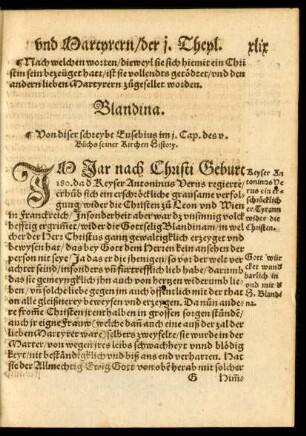 vnd Martyrern/der j. Theyl. xlix
¶ Nach welchen worten/dieweyl sie sich hiemit ein Chri
stin sein bezeüget hatt/ist sie vollendts getödtet/vnd den
andern lieben Martyrern zůgesellet worden.
Blandina.
¶ Von diser schreybt Eusebius im j. Cap. des v.
Bůchs seiner Kirchen History.
IM Jar nach Christi Geburt
180. da d Keyser Antoninus Verus regieret/
erhůb sich ein erschröckliche grausame verfol
gung/wider die Christen zů Leon vnd Wien
in Franckreich/Jn sonderheit aber ward
hefftig ergrimmet/wider die Gottselig Blandinam/in wel
cher der Herr Christus gantz gewaltigklich erzeyget vnd
beweysen hat/das bey Gott dem Herren kein ansehen der
person nit seye/Ja das er die jhenigen/so vor der welt ver
achtet seind/insonders vñ fürtrefflich lieb habe/darumb
das sie gemeyngklich jhn auch von hertzen widerumb lie
ben/vñ solche liebe gegen im auch öffentlich mit der that
on alle gleißnerey beweysen vnd erzeygen. Da nůn ande
re from̃e Christen jrenthalben in grossen sorgen stünde/
auch jr eigne Frauw (welche dañ auch eine auß der zal der
lieben Martyrer ware) selbers zweyfelte/sie wurde in der
Marter/von wegen jres leibs schwachheyt vnnd blödig
keyt/nit bestăndigklich vnd biß ans end verharren. Hat
sie der Allmechtig Ewig Gott von obē herab mit solcher
G Him̃
Keyser An
toninus Ve
rus ein er
schröcklich
er Tyrann
wider die
Christen.
Gott
cket wund
barlich in
vnd mit d
H. Blandi
na.